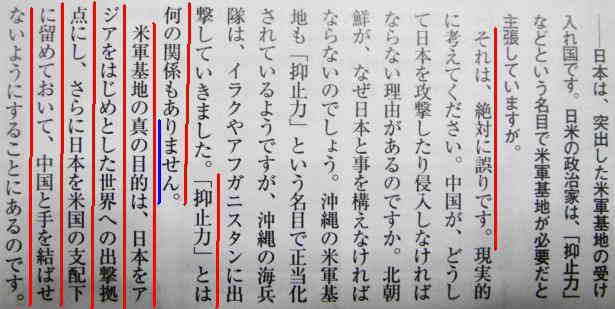 ――日本は、突出した米軍基地の受け
入れ国です。日米の政治家は、「抑止力」
などという名目で米軍基地が必要だと
主張していますが。
それは、絶対に誤りです。現実的
に考えてください。中国が、どうし
て日本を攻撃したり侵入しなければ
ならない理由があるのですか。北朝
鮮が、なぜ日本と事を構えなければ
ならないのでしょう。沖縄の米軍基
地も「抑止力」という名目で正当化
されているようですが、沖縄の海兵
隊は、イラクやアフガニスタンに出
撃していきました。「抑止力」とは
何の関係もありません。
米軍基地の真の目的は、日本をア
ジアをはじめとした世界への出撃拠
点にし、さらに日本を米国の支配下
に留めておいて、中国と手を結ばせ
ないようにすることにあるのです。